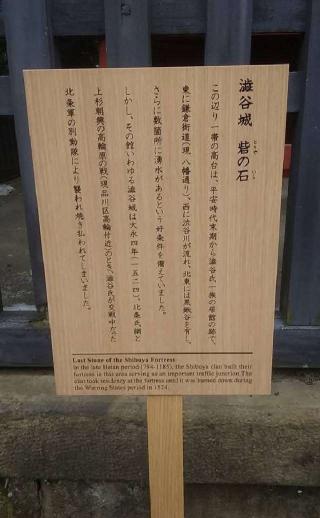 澁谷城 砦の石
とりで いし
この辺り一帯の高台は、平安時代末期から澁谷氏一族の居館の跡で、
東に鎌倉街道(現 八幡通り)、西に渋谷川が流れ、北東には黒鍬谷を有し、
さらに数箇所に湧水があるという好条件を備えていました。
しかし、その館いわゆる澁谷城は大永四年(一五二四)、北条氏綱と
上杉朝興の高輪原の戦(現品川区高輪付近)のとき、澁谷氏が交戦中だった
北条軍の別動隊により襲われ焼き払われてしまいました。
Last Stone of the Shibuya Fortress
In the late Heian period (794-1185), the Shibuya clan built their
fortress in this area serving as an important traffic junction.The
clan took residency at the fortress until it was burned down during
the Warring States period in 1524.